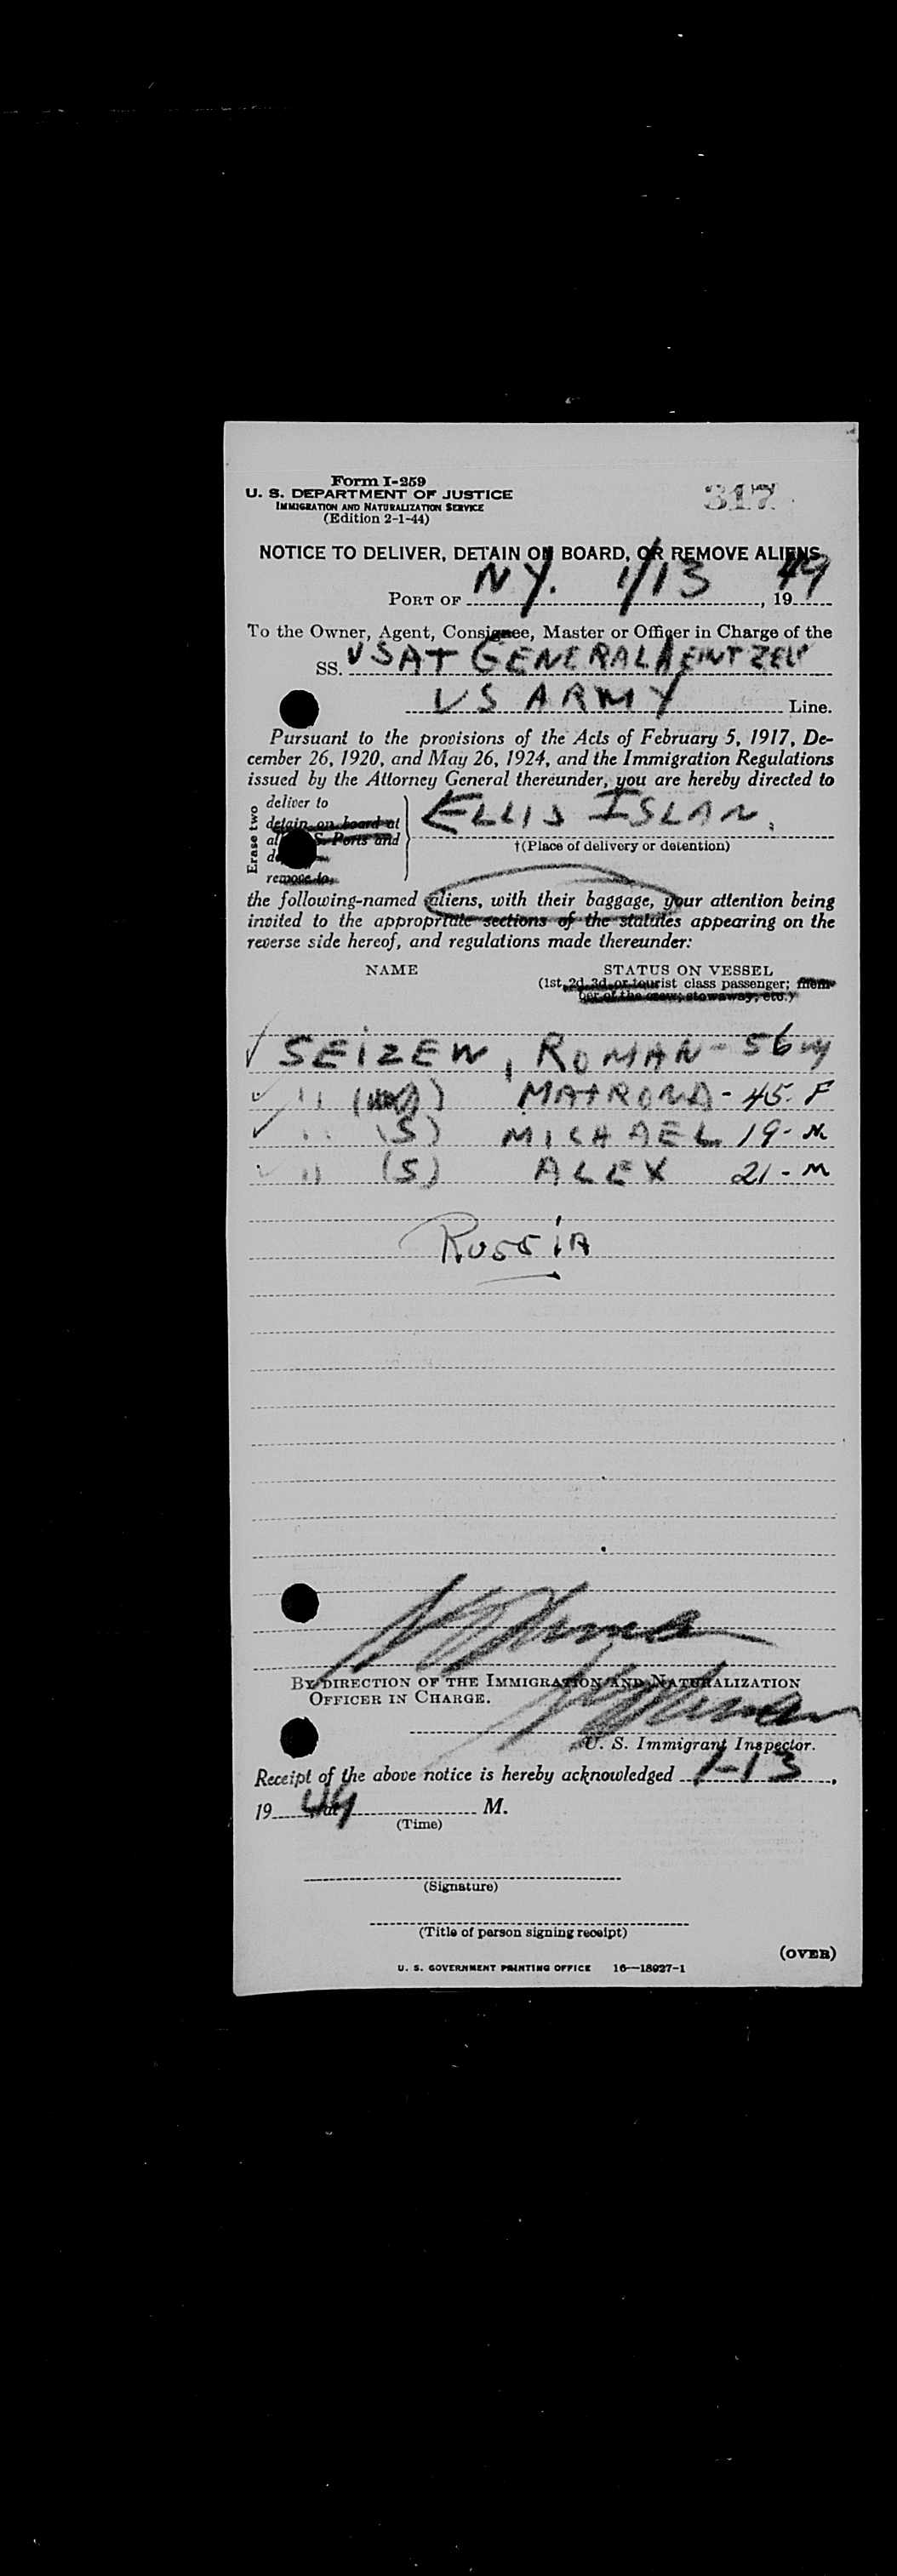 Form I-259
U. S. DEPARTMENT OF JUSTICE
IMMIGRATION AND NATURALIZATION SERVICE
(Edition 2-1-44)
317
NOTICE TO DELIVER, DETAIN ON BOARD, OR REMOVE ALIENS
PORT OF NY. 1/13, 1949
To the Owner, Agent, Consignee, Master or Officer in Charge of the
SS. USAT GENERAL
US ARMY Line.
Pursuant to the provisions of the Acts of February 5, 1917, De-
cember 26, 1920, and May 26, 1924, and the Immigration Regulations
issued by the Attorney General thereunder, you are hereby directed to
Erase two
deliver to
detain on board at
S. Ports and
remove to
ELLIS ISLAN,
†(Place of delivery or detention)
the following-named aliens, with their baggage, your attention being
invited to the appropriate sections of the statutes appearing on the
reverse side hereof, and regulations made thereunder:
NAME STATUS ON VESSEL
(1st, 2d, 3d, or tourist class passenger; mem-
ber of the crew; stowaway, etc.)
✓ SEIZEW, ROMAN - 56
✓ " MATRONA - 45. F
✓ " (S) MICHAEL 19 - M
✓ " (S) ALEX 21 - M
RUSSIA
BY DIRECTION OF THE IMMIGRATION AND NATURALIZATION
OFFICER IN CHARGE.
U. S. Immigrant Inspector.
Receipt of the above notice is hereby acknowledged 1-13,
1949, at M.
(Time)
(Signature)
(Title of person signing receipt)
(OVER)
U. S. GOVERNMENT PRINTING OFFICE 16—18927-1